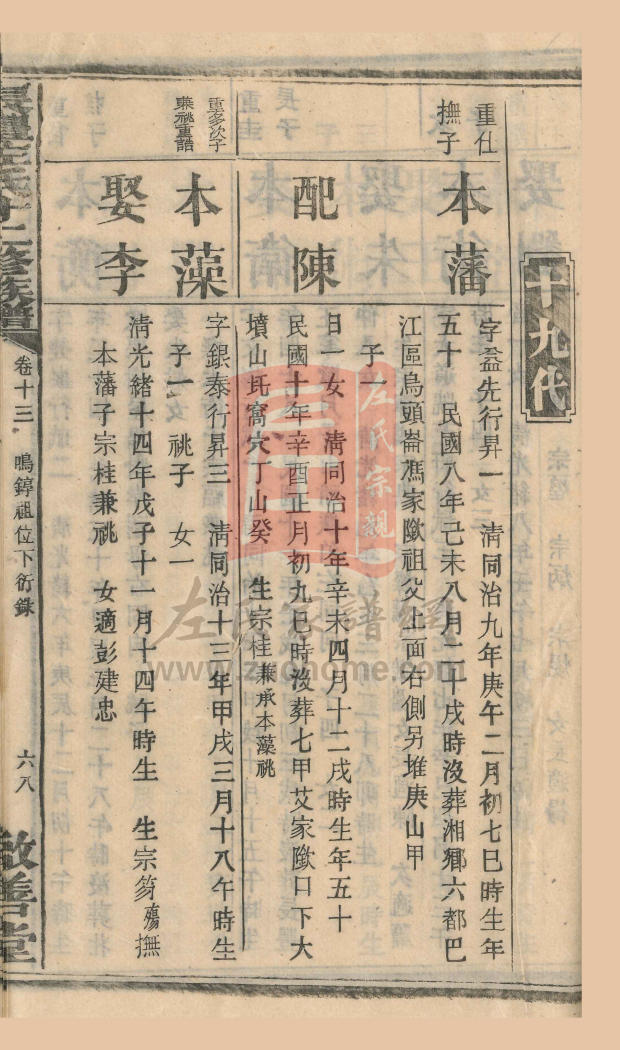 十九代
重仕
撫子
本藩
字益先行昇一　清同治九年庚午二月初七巳時生年
五十　民國八年己未八月二十戌時沒葬湘鄉六都巴
江區烏頭崙馮家㘓祖父上面右側另堆庚山甲
子一
配陳
日一女　清同治十年辛未四月十二戌時生年五十
民國十年辛酉正月初九巳時沒葬七甲艾家㘓口下大
墳山㘭窩穴丁山癸　生宗桂兼承本藻祧
重多次子
兼祧重諧
本藻
字銀泰行昇三　清同治十三年甲戌三月十八午時生
子一　祧子　女一
娶李
清光緒十四年戊子十一月十四午時生　生宗筠殤撫
本藩子宗桂兼祧　女適彭建忠
左氏十二修族譜
卷十三
鳴錞祖位下衍銖
六八
敦善堂
左氏宗親
左氏家譜網
www.zuohome.com